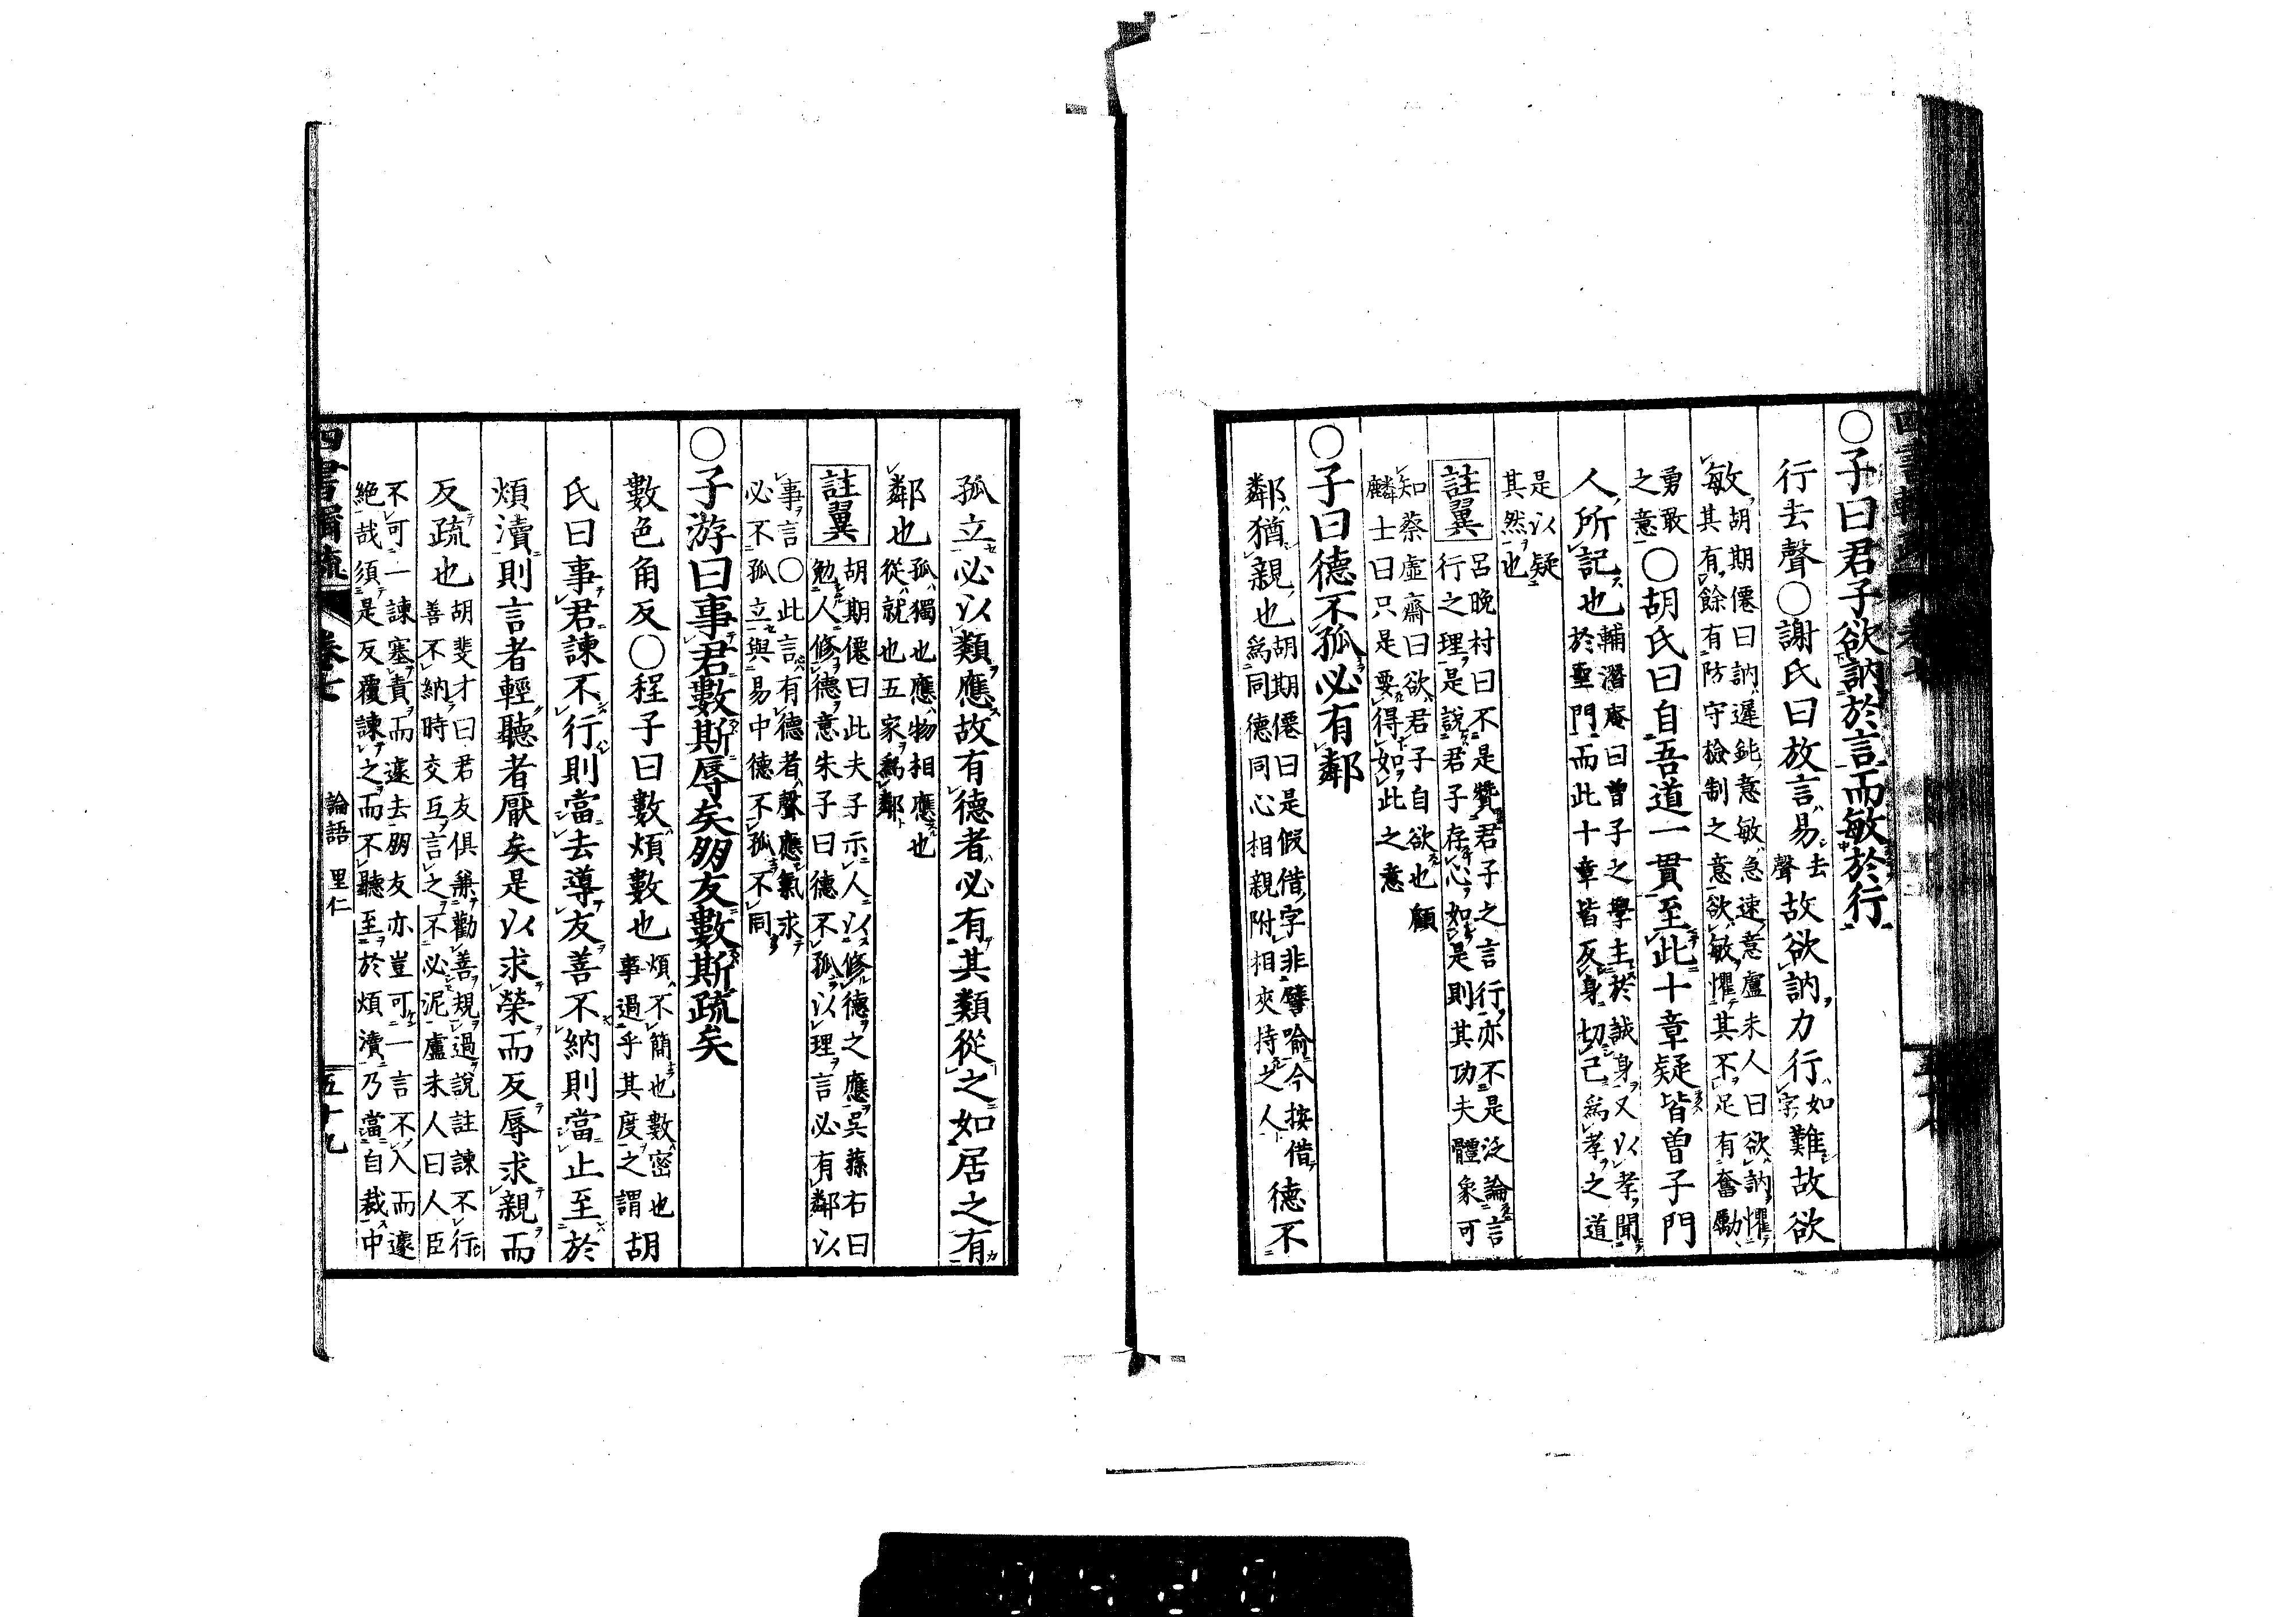 〇子曰君子欲訥於言而敏於行
行去聲〇謝氏曰放言易去聲故欲訥力行如字難故欲
敏胡期僊曰訥遲鈍意敏急速意盧未人曰欲訥懼
其有餘有防守檢制之意欲敏懼其不足有奮勵
勇敢
之意〇胡氏曰自吾道一貫至此十章疑皆曾子門
人所記也輔潛庵曰曾子之學主於誠身又以孝聞
於聖門而此十章皆反身切己為孝之道
是以疑
其然也
註翼呂晚村曰不是贊君子之言行亦不是泛論言
行之理是說君子存心如是則其功夫體象可
知蔡虛齋曰欲君子自欲也顧
麟士曰只是要得如此之意
〇子曰德不孤必有鄰
鄰猶親也胡期僊曰是假借字非譬喻今按借
為同德同心相親附相夾持之人德不
孤立必以類應故有德者必有其類從之如居之有
鄰也孤獨也應物相應也
從就也五家為鄰
註翼胡期僊曰此夫子示人以修德之應吳蓀右曰
勉人修德意朱子曰德不孤以理言必有鄰以
事言〇此言有德者聲應氣求
必不孤立與易中德不孤不同
〇子游曰事君數斯辱矣朋友數斯疏矣
數色角反〇程子曰數煩數也煩不簡也數密也
事過乎其度之謂胡
氏曰事君諫不行則當去導友善不納則當止至於
煩瀆則言者輕聽者厭矣是以求榮而反辱求親而
反疏也胡斐才曰君友俱兼勸善規過說註諫不行
善不納時交互言之不必泥盧未人曰人臣
不可一諫塞責而遽去朋友亦豈可一言不入而遽
絕哉須是反覆諫之而不聽至於煩瀆乃當自裁中
四書 卷七 論語 里仁 五十九